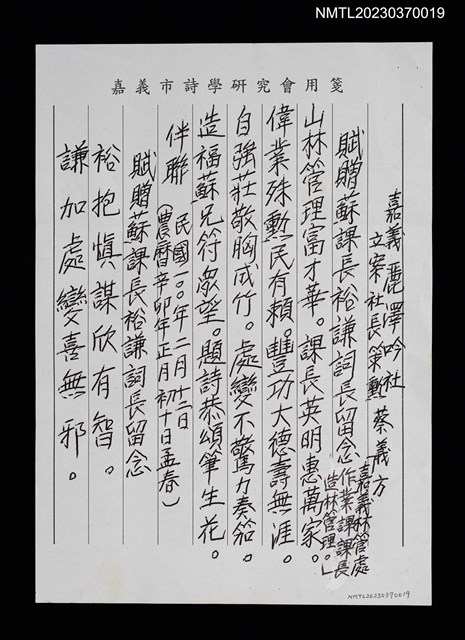 NMTL20230370019
嘉義市詩學研究會用箋
嘉義麗澤吟社
立案社長策勳蔡義方
賦贈蘇課長裕謙詞長留念
嘉義林管處
作業課課長
造林管理。」
山林管理富才華。課長英明惠萬家。
偉業殊勳民有賴。豐功大德壽無涯。
自強莊敬胸成竹。處變不驚力奏笳。
造福蘇兄符眾望。題詩恭頌筆生花。
伴聯
民國一〇〇年二月十二日
(農曆辛卯年正月初十日孟春)
賦贈蘇課長裕謙詞長留念
裕抱慎謀欣有智。
謙加處變喜無邪。
NMTL20230370019